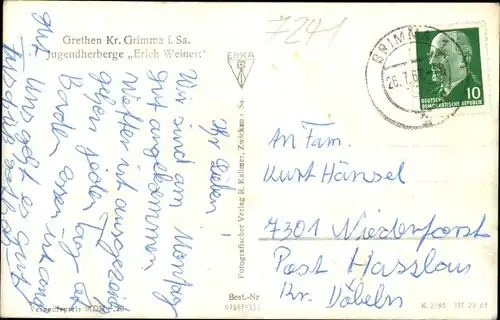 7241
Grethen Kr. Grimma i. Sa.
Jugendherberge „Erich Weinert“
ERKA
GRIMMA
26.7.6
DEUTSCHE
DEMOKRATISCHE REPUBLIK
10
Ihr Lieben!
Wir sind am Montag
gut angekommen
Wetter ist ausgezeich
gehen jeden Tag
Baden, essen ist auch
gut. Uns geht es gut
An Fam.
Kurt Hänsel
7301 Niederforst
Post Hasslau
Kr. Döbeln
Fotografischer Verlag R. Kallmer, Zwickau / Sa.
Verkaufspreis MDN -,20
Best.-Nr
K 2/65 III 29 65